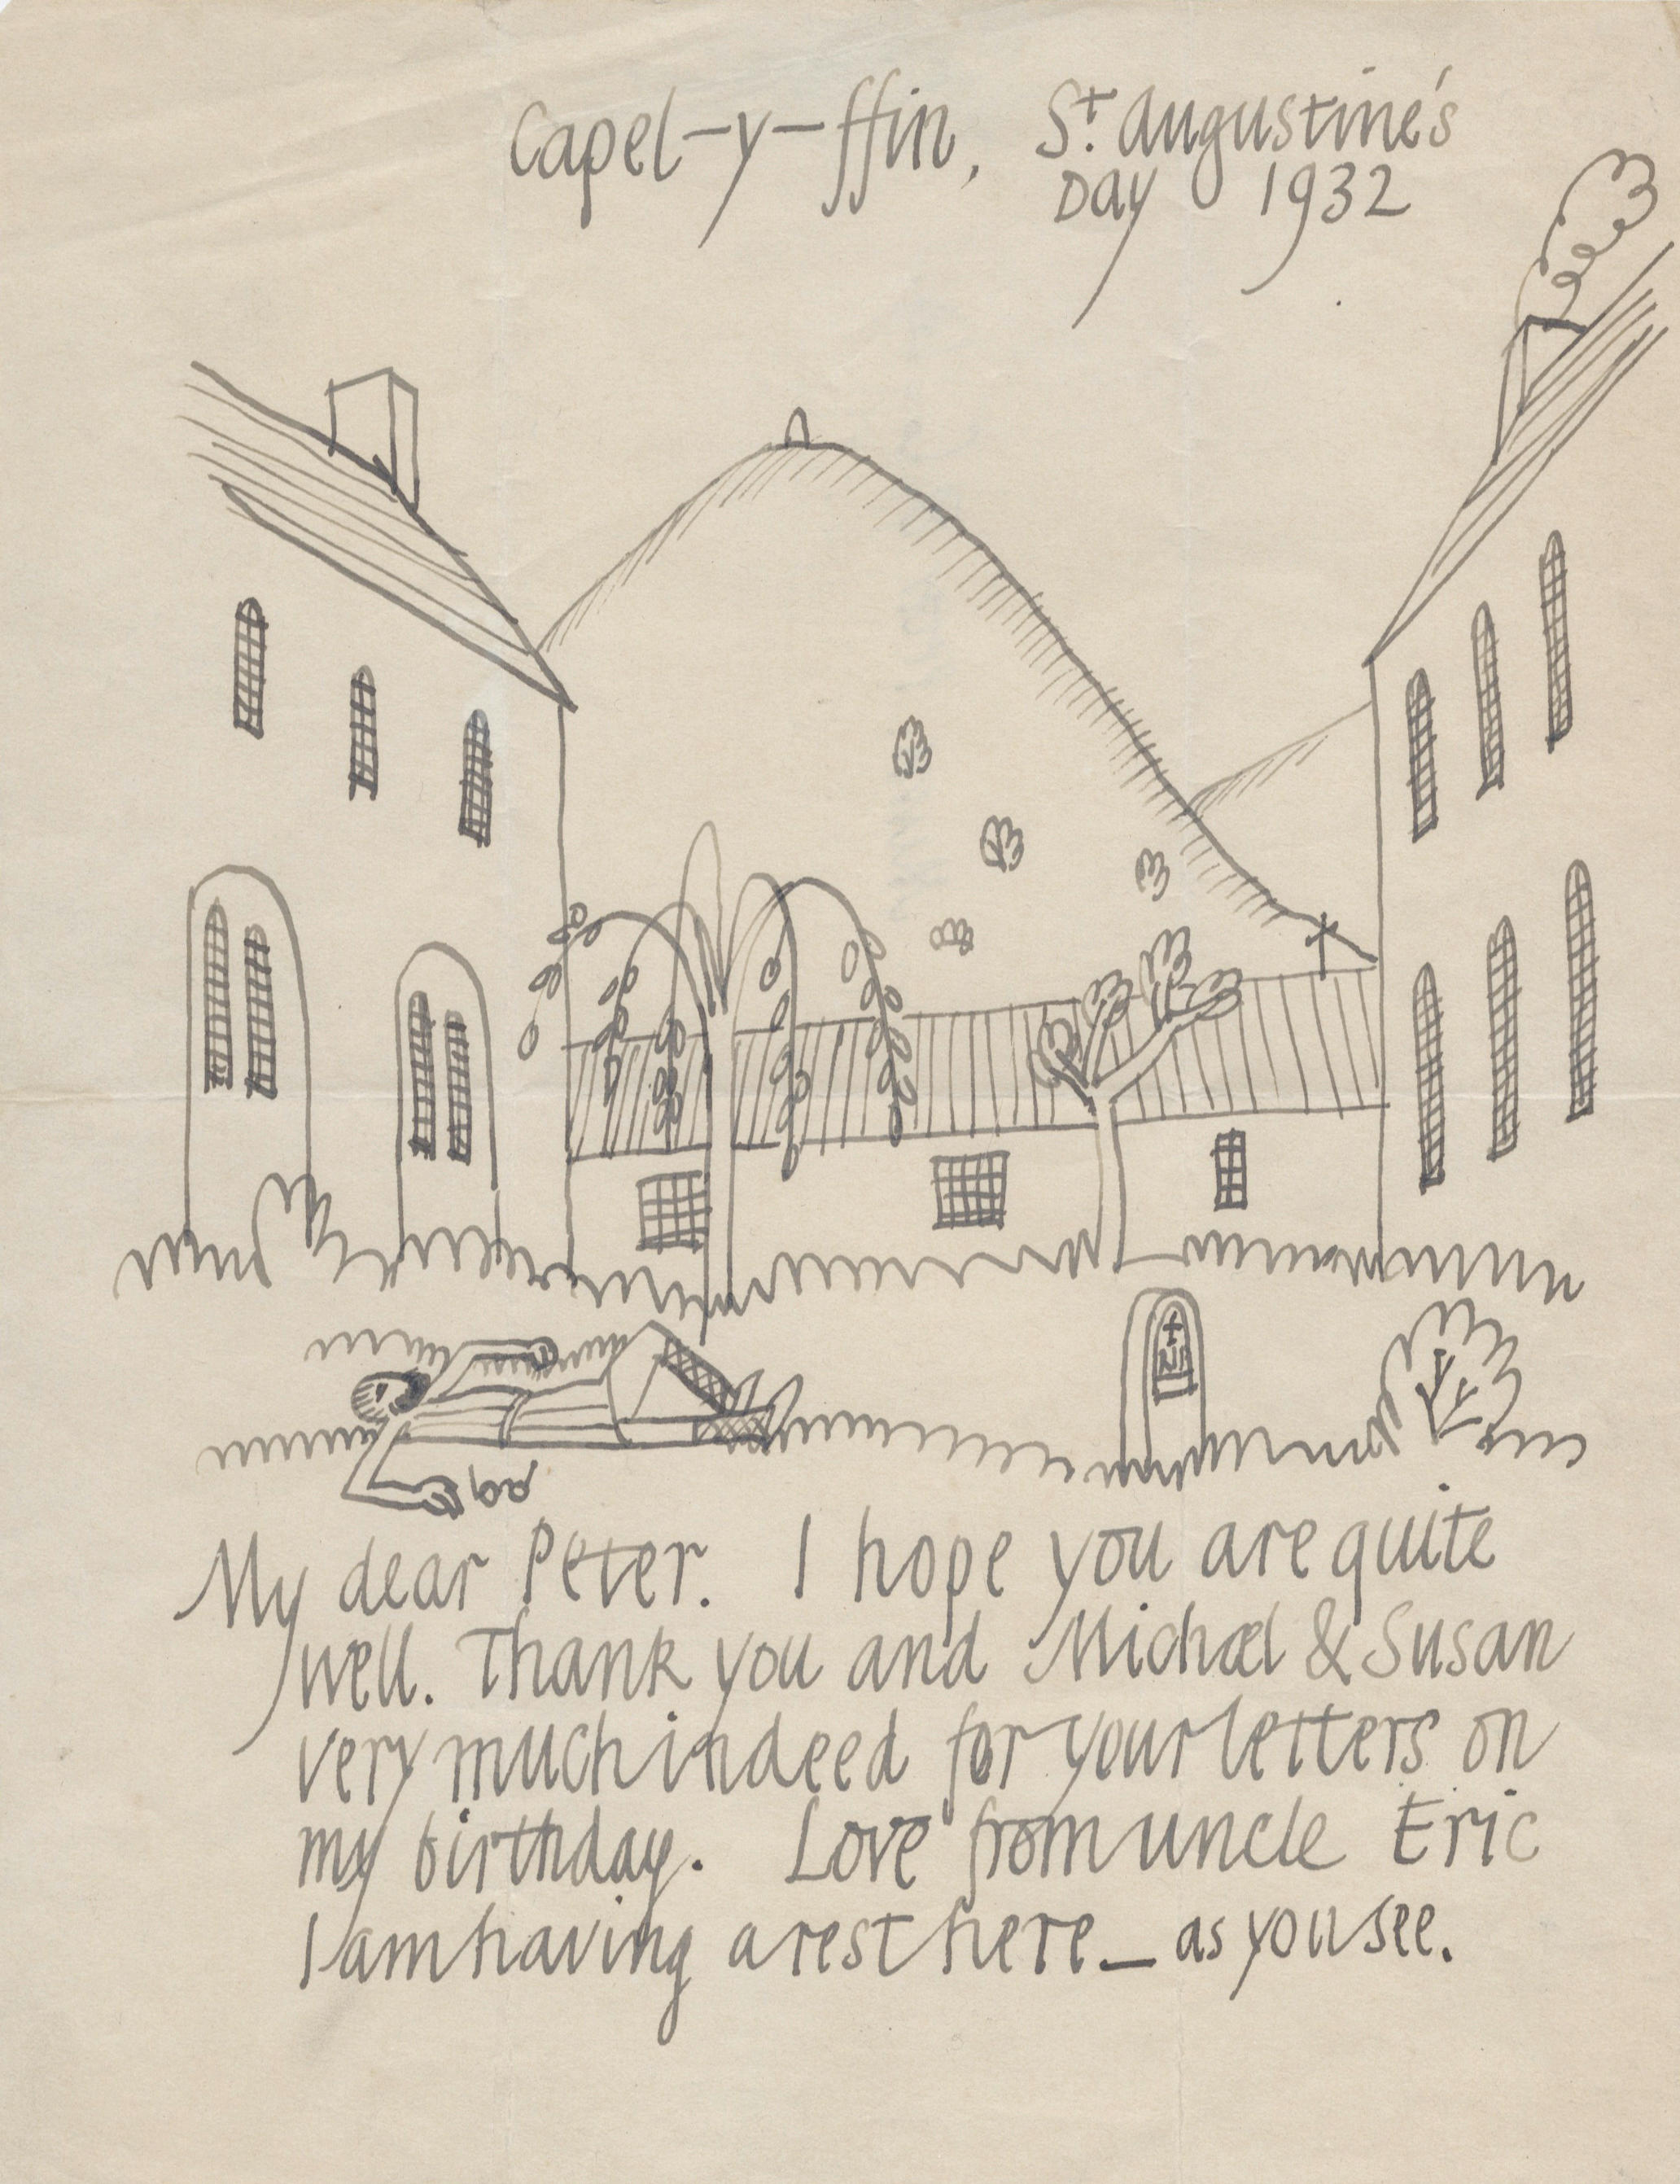 Capel-y-ffin, St. Augustine's
Day 1932
My dear Peter. I hope you are quite
well. Thank you and Michael & Susan
very much indeed for your letters on
my birthday. Love from uncle Eric
I am having a rest here — as you see.